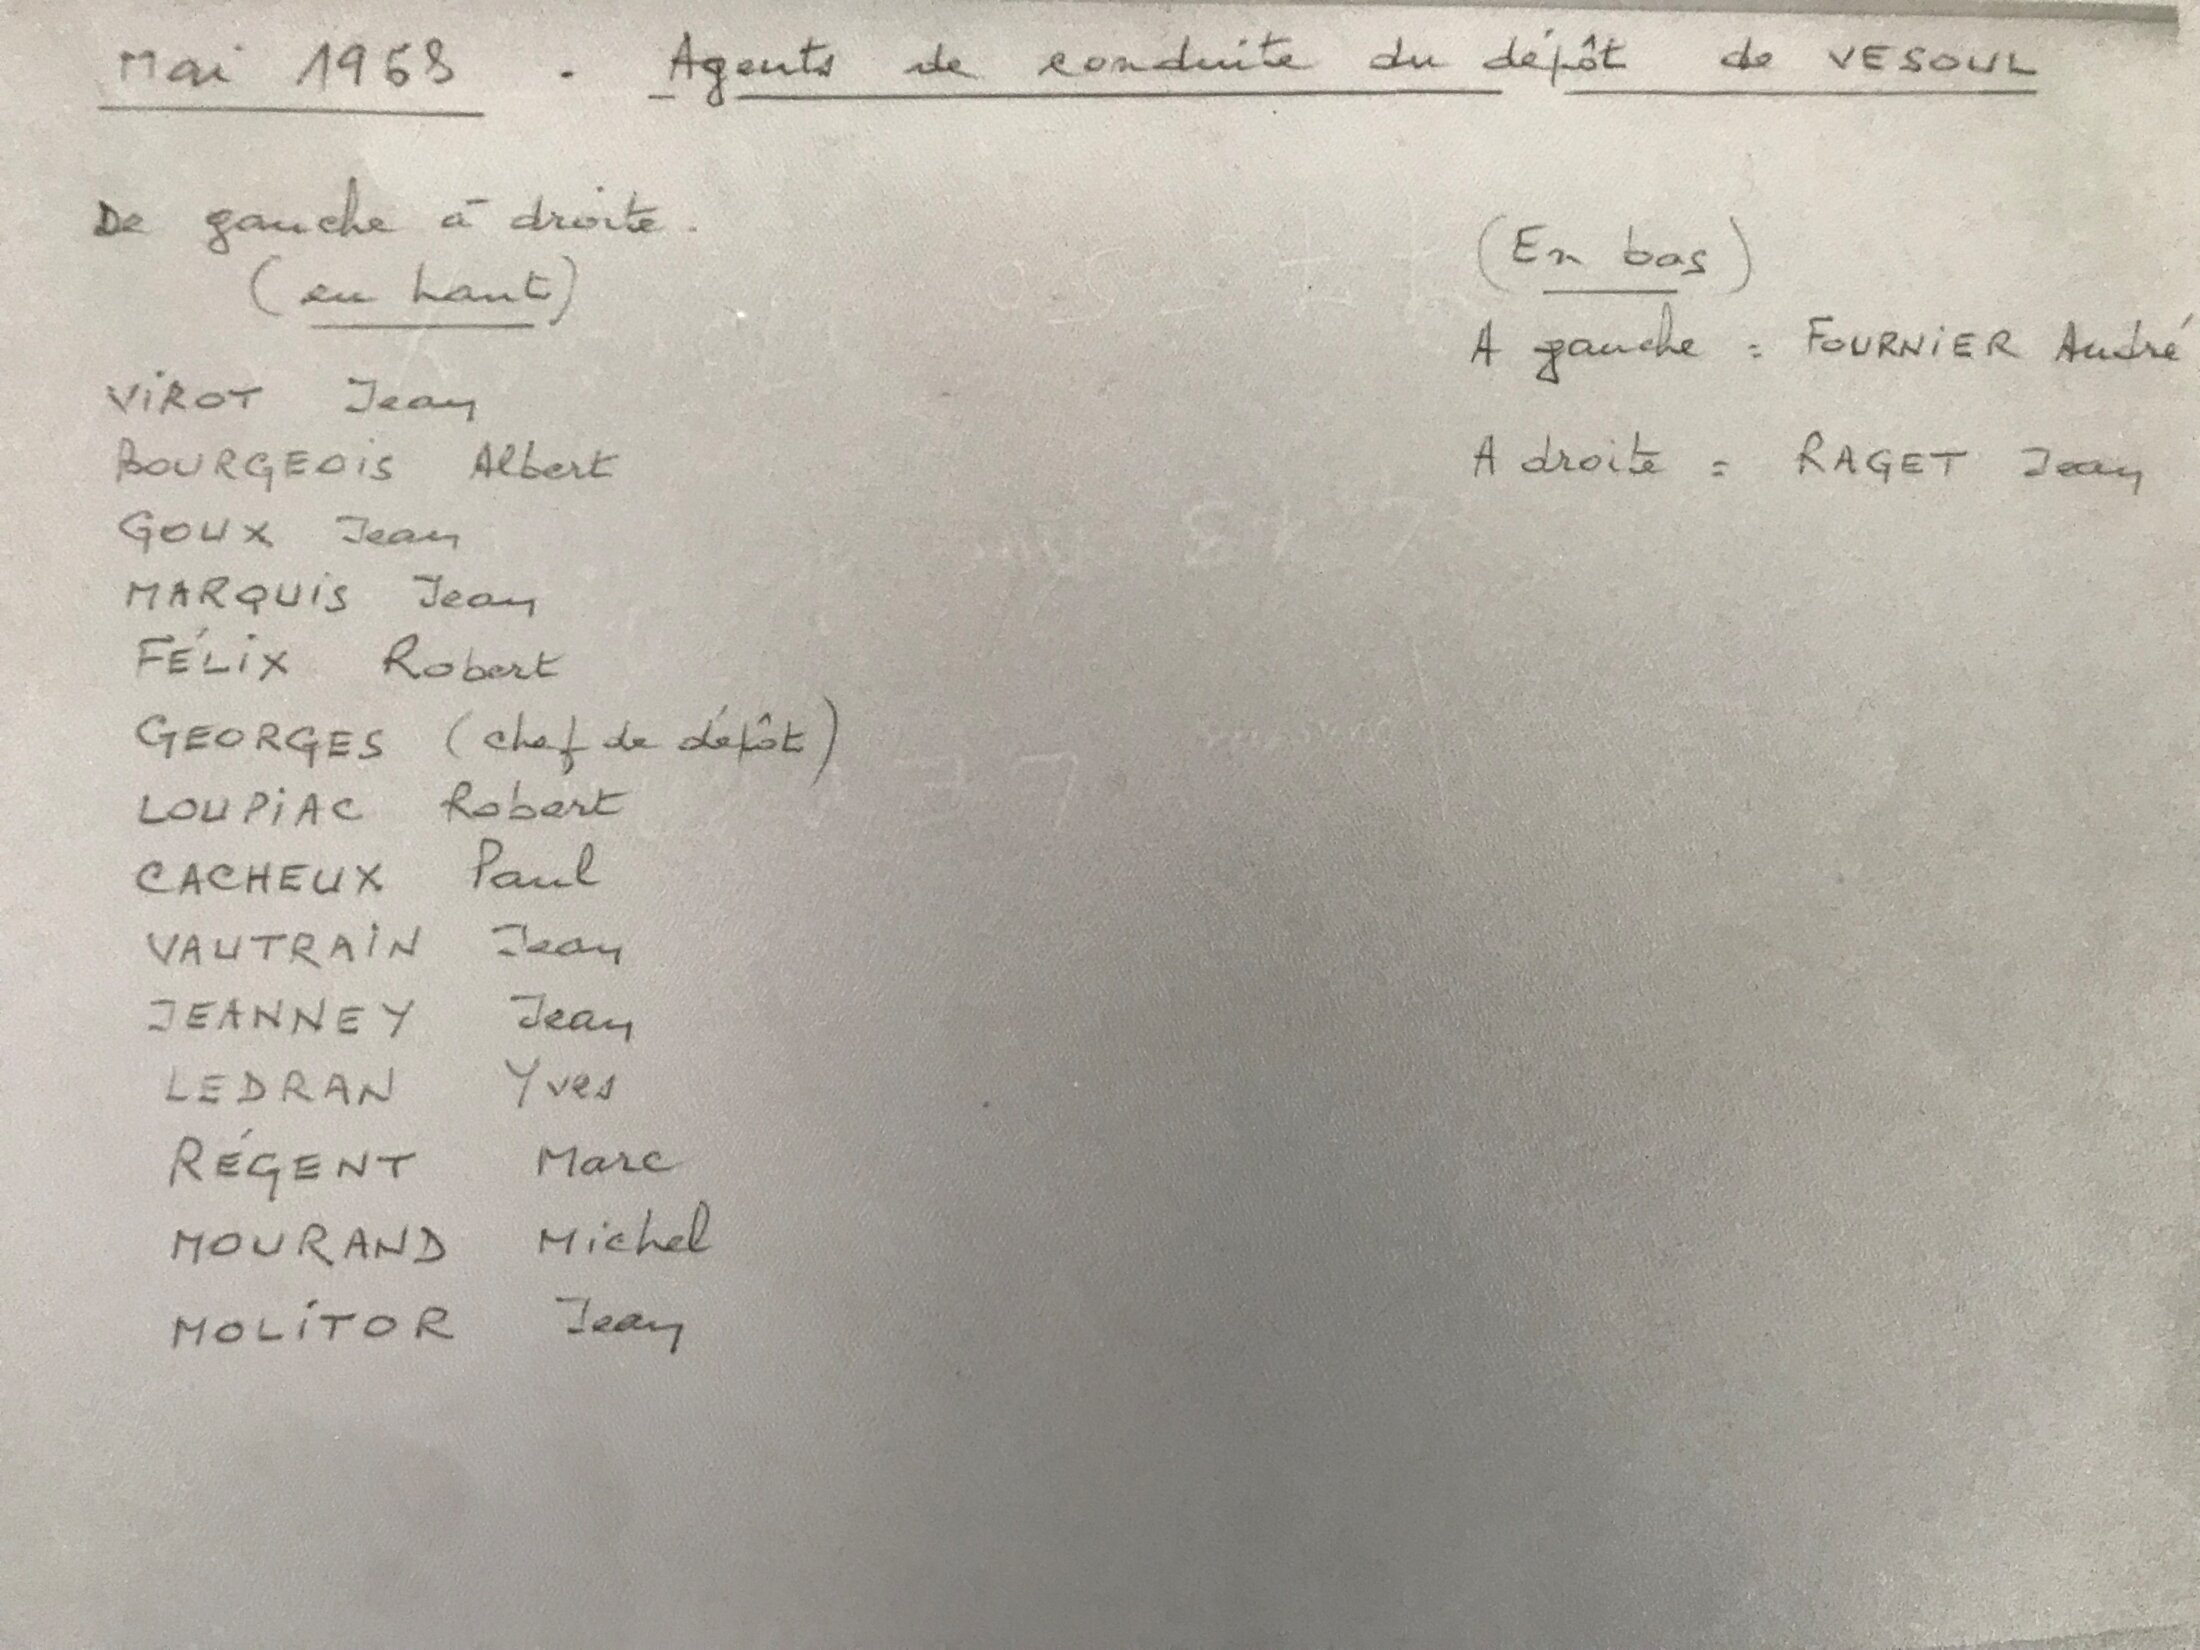 Mai 1968 . Agents de conduite du dépôt de VESOUL
De gauche à droite.
(en haut)
VIROT Jean
BOURGEOIS Albert
GOUX Jean
MARQUIS Jean
FÉLIX Robert
GEORGES (chef de dépôt)
LOUPIAC Robert
CACHEUX Paul
VAUTRAIN Jean
JEANNEY Jean
LEDRAN Yves
RÉGENT Marc
MOURAND Michel
MOLITOR Jean
(En bas)
A gauche = FOURNIER André
A droite = RAGET Jean